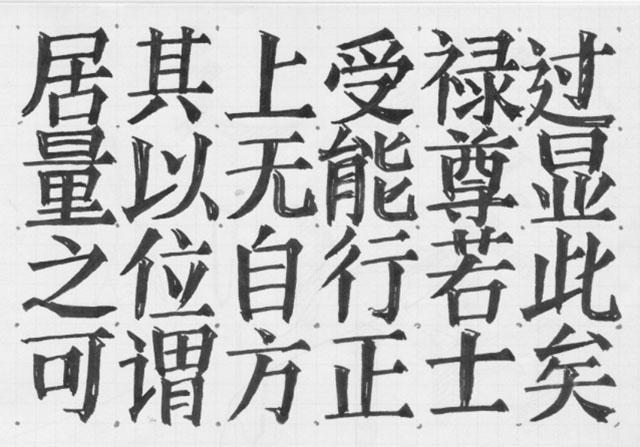 居其上受禄过
量以无能尊显
之位自行若此
可谓方正士矣